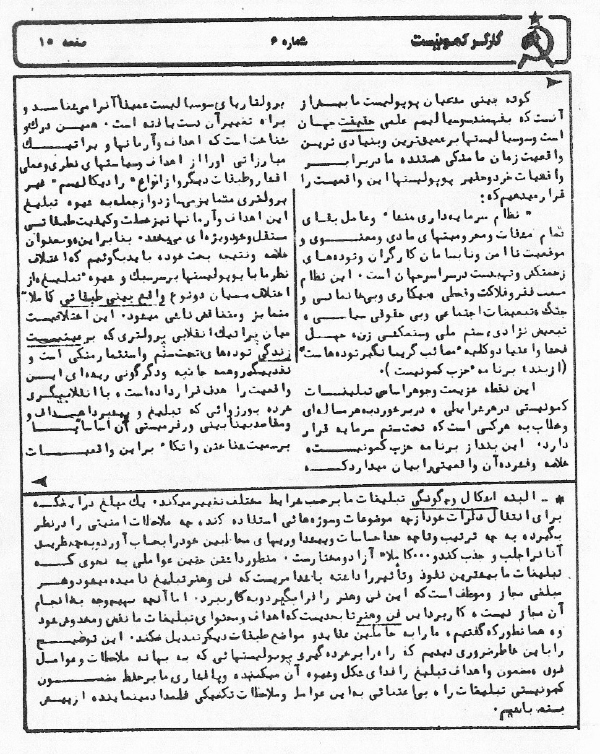 کارگر کمونیست
شماره ۶
صفحه ۱۵
کوته بینی مدعیان پوپولیست ما بیش از
آنست که بفهمند سوسیالیسم علمی حقیقت جهان
است و سوسیالیستها بر عمیق‌ترین و بنیادی ترین
واقعیت زمان ما متکی هستند ما در برابر
واقعیات خرد و حقیر پوپولیستها این واقعیت را
قرار میدهیم که:
" نظام سرمایه‌داری منشاء و عامل بقای
تمام مشقات و محرومیتهای مادی و معنوی و
موقعیت ناامن و نابسامان کارگران و توده‌های
زحمتکش و تهیدست در سراسر جهان است. این نظام
مسبب فقر و فلاکت و قحطی، بیکاری و بی‌خانمانی و
جنگ، تبعیضات اجتماعی و بی حقوقی سیاسی،
تبعیض نژادی، ستم ملی و ستمکشی زن، جهل
فحشا و اعتیاد و کلیه مصائب گریبانگیر توده‌هاست"
(از بند ۱ برنامه حزب کمونیست).
این نقطه عزیمت و جوهر اساسی تبلیغات
کمونیستی در هر شرایطی، در برخورد به هر مساله‌ای
و خطاب به هر کسی است که تحت ستم سرمایه قرار
دارد. این بند از برنامه حزب کمونیست
خلاصه و فشرده آن واقعیتی را بیان میدارد که
پرولتاریای سوسیالیست عمیقا آنرا می‌شناسد و
براه تغییر آن دست یافته است. همین درک و
شناخت است که اهداف و آرمانها و پراتیک
مبارزاتی او را از اهداف و سیاستهای نظری و عملی
اقشار و طبقات دیگر و از انواع "رادیکالیسم" غیر
پرولتری متمایز میسازد و از جمله به شیوه تبلیغ
این اهداف و آرمانها نیز خصلت و کیفیت طبقاتی
مستقل و خود ویژه‌ای می‌بخشد. بنابراین و بعنوان
خلاصه و نتیجه بحث خود باید بگوئیم که اختلاف
نظر ما با پوپولیستها بر سر سبک و شیوه تبلیغ، از
اختلاف میان دو نوع واقع بینی طبقاتی کاملا
متمایز و متناقض ناشی میشود. این اختلافیست
میان پراتیک انقلابی پرولتری که بر عینیت
زندگی توده‌های تحت ستم و استثمار متکی است و
تغییر همه جانبه و دگرگونی ریشه‌ای این
واقعیت را هدف قرار داده است، با انقلابیگری
خرده بورژوائی که تبلیغ و پیشبرد اهداف و
مقاصد بینابینی و رفرمیستی آن اساسا
بر سر عدم شناختن و اتکاء بر این واقعیات
* - البته اشکال و چگونگی تبلیغات ما بر حسب شرایط مختلف تغییر میکند. یک مبلغ در اینکه
برای انتقال نظرات خود از چه موضوعات و سوژه‌هائی استفاده کند، چه ملاحظات امنیتی را در نظر
بگیرد، به چه ترتیب و تا چه حد احساسات و پیشداوریهای مخاطبین خود را بحساب آورد، و به چه طریق
آنانرا جلب و جذب کند و... کاملا آزاد و مختار است. منظور داشتن چنین عواملی به نحوی که
تبلیغات ما بیشترین نفوذ و تأثیر را داشته باشد امریست که فن و هنر تبلیغ نامیده میشود و هر
مبلغی مجاز و موظف است که این فن و هنر را فرا بگیرد و به کار ببرد. اما آنچه به هیچوجه به انجام
آن مجاز نیست، کاربرد این فن و هنر تا به حدیست که اهداف و محتوای تبلیغات ما نقض و مخدوش شود
و همانطور که گفتیم، ما را به حاملین عقاید و مواضع طبقات دیگر تبدیل کند. این توضیح
را باین خاطر ضروری دیدیم که راه را بر خرده گیری پوپولیستهائی که به بهانه ملاحظات و عوامل
فوق مضمون و اهداف تبلیغ را فدای شکل و شیوه آن میکنند، و پافشاری ما بر حفظ مضمون
کمونیستی تبلیغات را، بی‌اعتنائی به این عوامل و ملاحظات تکنیکی قلمداد مینمایند، از پیش
بسته باشیم.